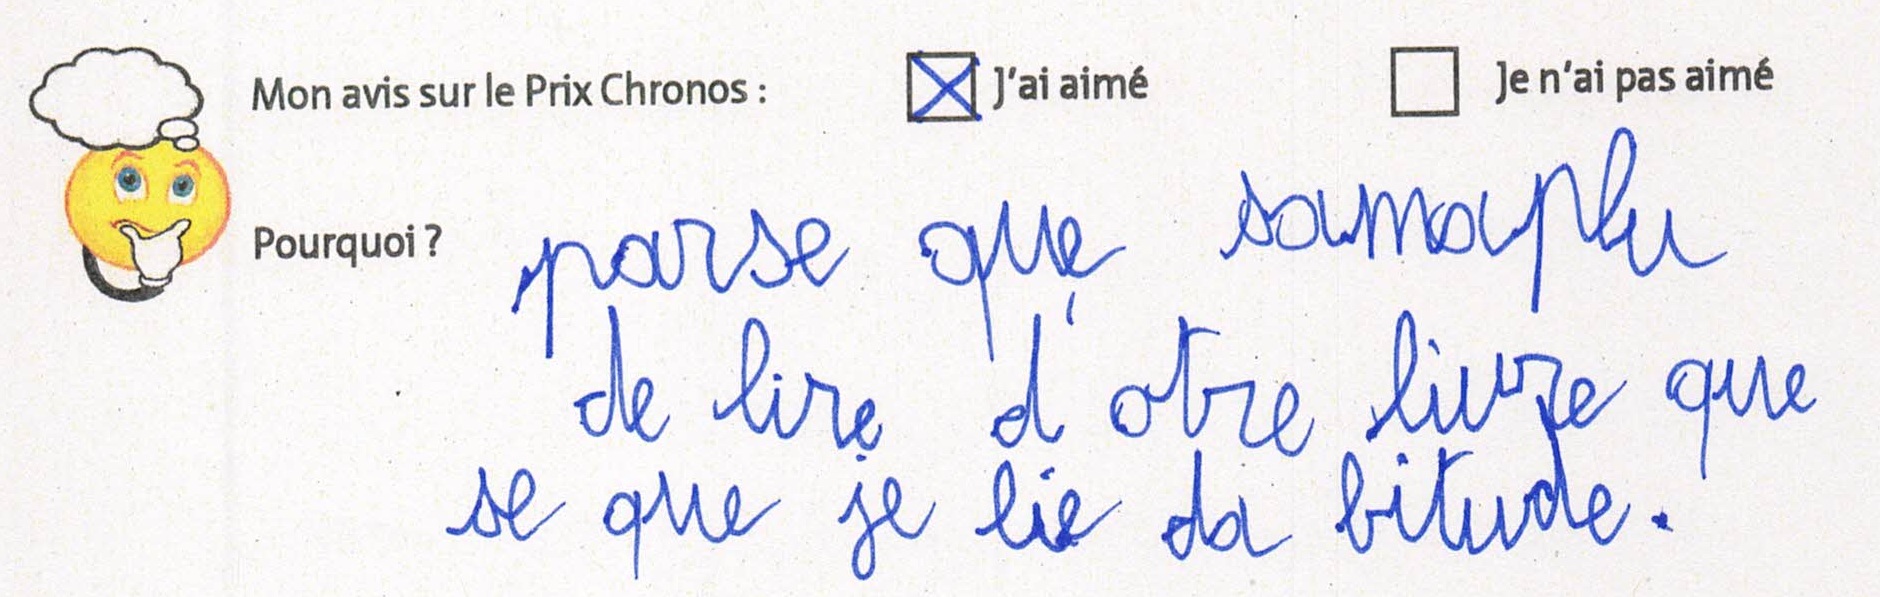 Mon avis sur le Prix Chronos : J'ai aimé Je n'ai pas aimé
Pourquoi ? parse que samaplu
de lire d'otre livre que
se que je lie da bitude.